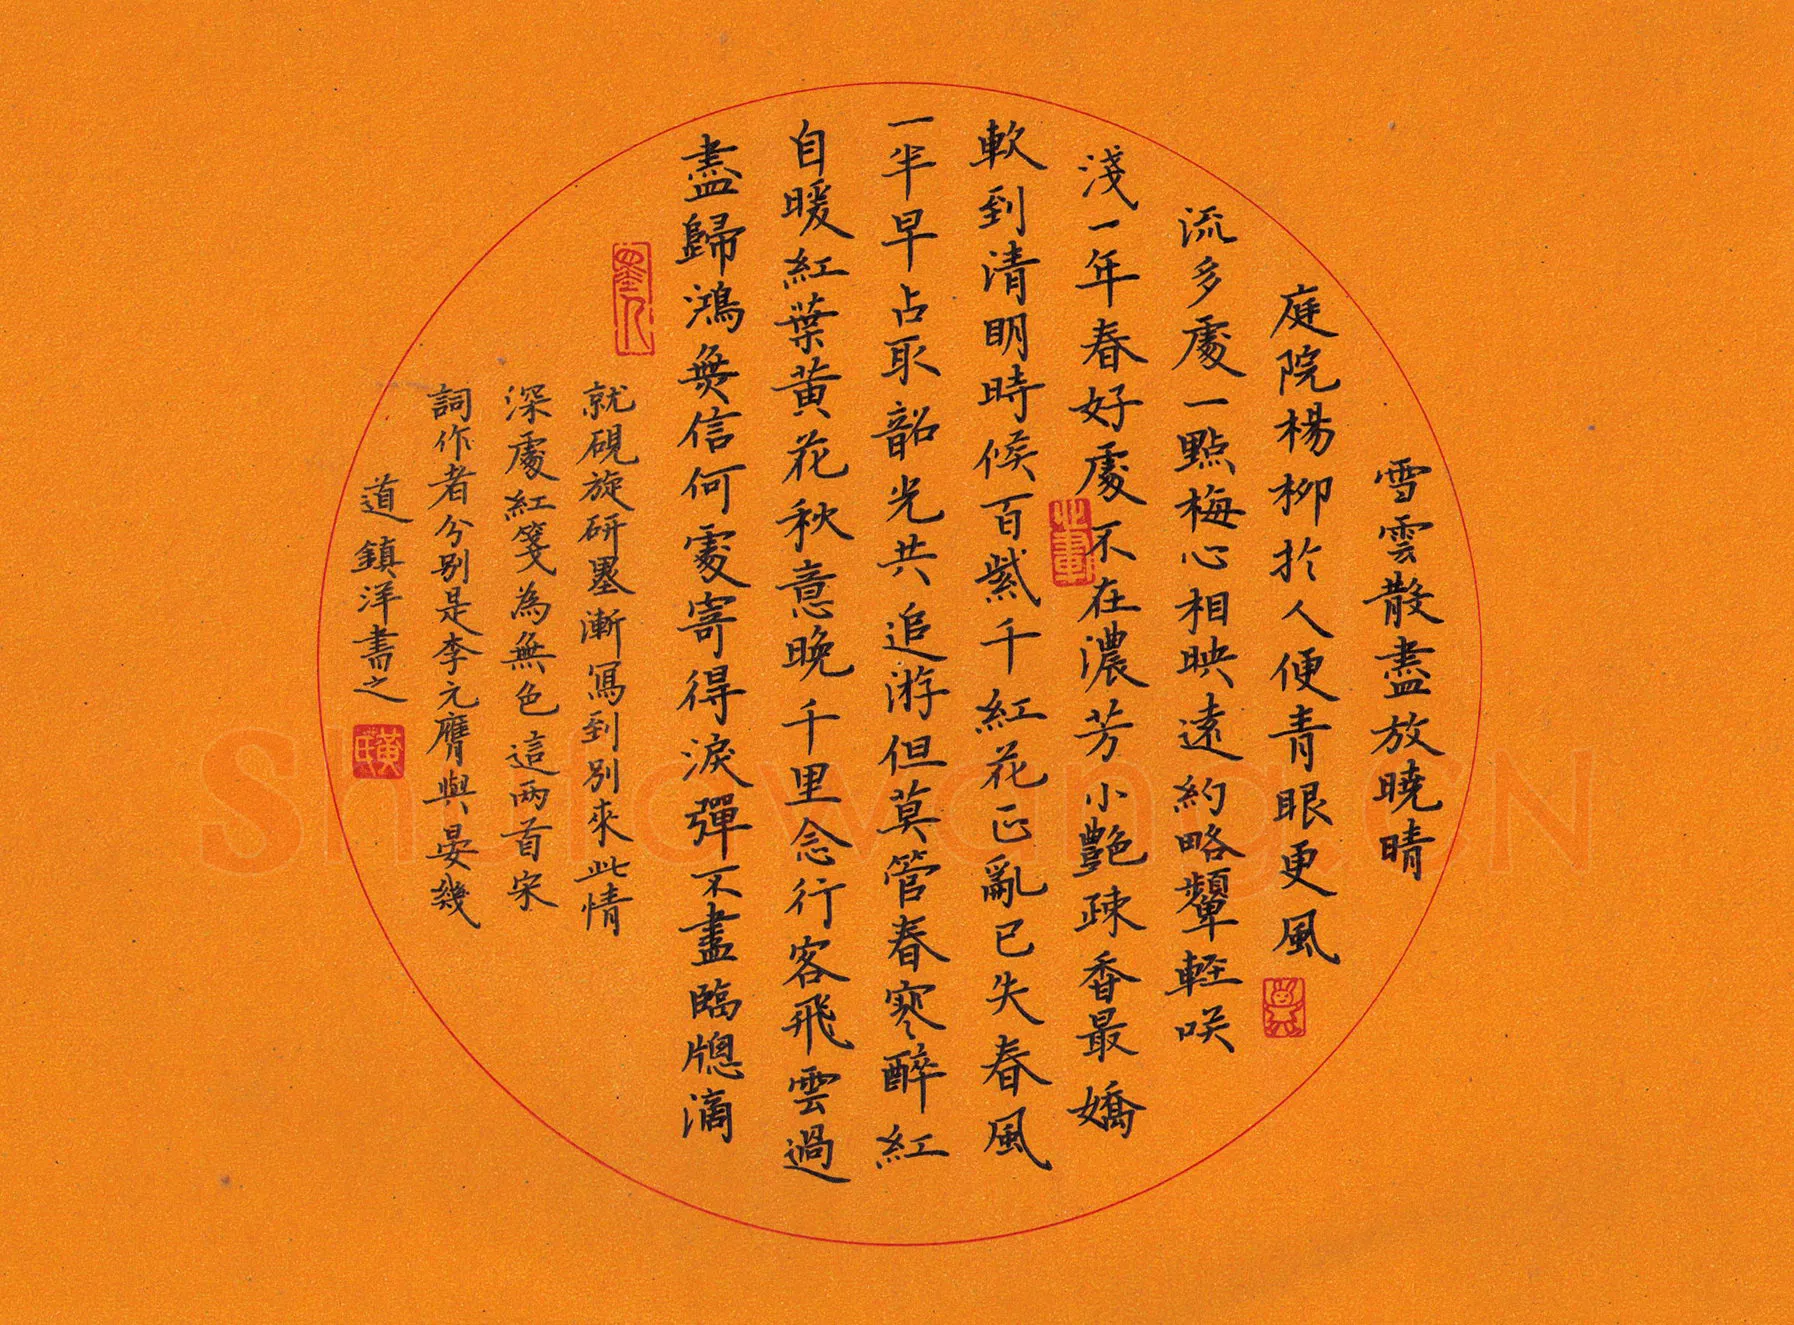 雪雲散盡放曉晴
庭院楊柳於人便青眼更風
流多處一點梅心相映遠約略顰輕笑
淺一年春好處不在濃芳小艷疎香最嬌
軟到清明時候百紫千紅花正亂已失春風
一半早占取韶光共追游但莫管春寒醉紅
自暖紅葉黃花秋意晚千里念行客飛雲過
盡歸鴻無信何處寄得淚彈不盡臨牕滴
就硯旋研墨漸寫到別來此情
深處紅箋為無色這兩首宋
詞作者分別是李元膺與晏幾
道鎮洋書之
Shufawang.CN